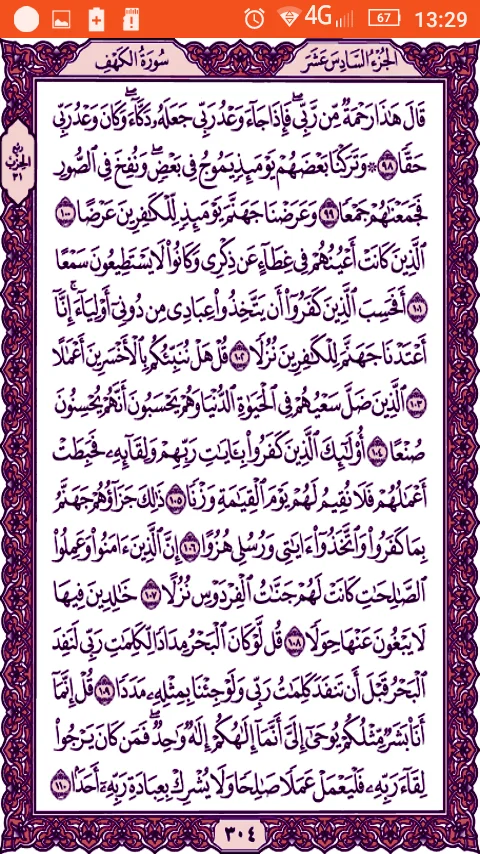 4G 67 13:29
الجزء السادس عشر
سورة الكهف
ربع الحزب ٣١
قَالَ هَٰذَا رَحْمَةٌ مِّن رَّبِّي ۖ فَإِذَا جَآءَ وَعْدُ رَبِّي جَعَلَهُۥ دَكَّآءَ ۖ وَكَانَ وَعْدُ رَبِّي
حَقًّا ٩٨ ۞ وَتَرَكْنَا بَعْضَهُمْ يَوْمَئِذٍ يَمُوجُ فِي بَعْضٍ ۖ وَنُفِخَ فِي ٱلصُّورِ
فَجَمَعْنَٰهُمْ جَمْعًا ٩٩ وَعَرَضْنَا جَهَنَّمَ يَوْمَئِذٍ لِّلْكَٰفِرِينَ عَرْضًا ١٠٠
ٱلَّذِينَ كَانَتْ أَعْيُنُهُمْ فِي غِطَآءٍ عَن ذِكْرِي وَكَانُوا۟ لَا يَسْتَطِيعُونَ سَمْعًا
١٠١ أَفَحَسِبَ ٱلَّذِينَ كَفَرُوٓا۟ أَن يَتَّخِذُوا۟ عِبَادِي مِن دُونِيٓ أَوْلِيَآءَ ۚ إِنَّآ
أَعْتَدْنَا جَهَنَّمَ لِلْكَٰفِرِينَ نُزُلًا ١٠٢ قُلْ هَلْ نُنَبِّئُكُم بِٱلْأَخْسَرِينَ أَعْمَٰلًا
١٠٣ ٱلَّذِينَ ضَلَّ سَعْيُهُمْ فِي ٱلْحَيَوٰةِ ٱلدُّنْيَا وَهُمْ يَحْسَبُونَ أَنَّهُمْ يُحْسِنُونَ
صُنْعًا ١٠٤ أُو۟لَٰٓئِكَ ٱلَّذِينَ كَفَرُوا۟ بِـَٔايَٰتِ رَبِّهِمْ وَلِقَآئِهِۦ فَحَبِطَتْ
أَعْمَٰلُهُمْ فَلَا نُقِيمُ لَهُمْ يَوْمَ ٱلْقِيَٰمَةِ وَزْنًا ١٠٥ ذَٰلِكَ جَزَآؤُهُمْ جَهَنَّمُ
بِمَا كَفَرُوا۟ وَٱتَّخَذُوٓا۟ ءَايَٰتِي وَرُسُلِي هُزُوًا ١٠٦ إِنَّ ٱلَّذِينَ ءَامَنُوا۟ وَعَمِلُوا۟
ٱلصَّٰلِحَٰتِ كَانَتْ لَهُمْ جَنَّٰتُ ٱلْفِرْدَوْسِ نُزُلًا ١٠٧ خَٰلِدِينَ فِيهَا
لَا يَبْغُونَ عَنْهَا حِوَلًا ١٠٨ قُل لَّوْ كَانَ ٱلْبَحْرُ مِدَادًا لِّكَلِمَٰتِ رَبِّي لَنَفِدَ
ٱلْبَحْرُ قَبْلَ أَن تَنفَدَ كَلِمَٰتُ رَبِّي وَلَوْ جِئْنَا بِمِثْلِهِۦ مَدَدًا ١٠٩ قُلْ إِنَّمَآ
أَنَا۠ بَشَرٌ مِّثْلُكُمْ يُوحَىٰٓ إِلَيَّ أَنَّمَآ إِلَٰهُكُمْ إِلَٰهٌ وَٰحِدٌ ۖ فَمَن كَانَ يَرْجُوا۟
لِقَآءَ رَبِّهِۦ فَلْيَعْمَلْ عَمَلًا صَٰلِحًا وَلَا يُشْرِكْ بِعِبَادَةِ رَبِّهِۦٓ أَحَدًۢا ١١٠
٣٠٤